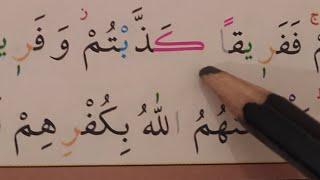 فَفَرِيقًا كَذَّبْتُمْ وَفَرِي
اللّٰهُ بِكُفْرِهِمْ